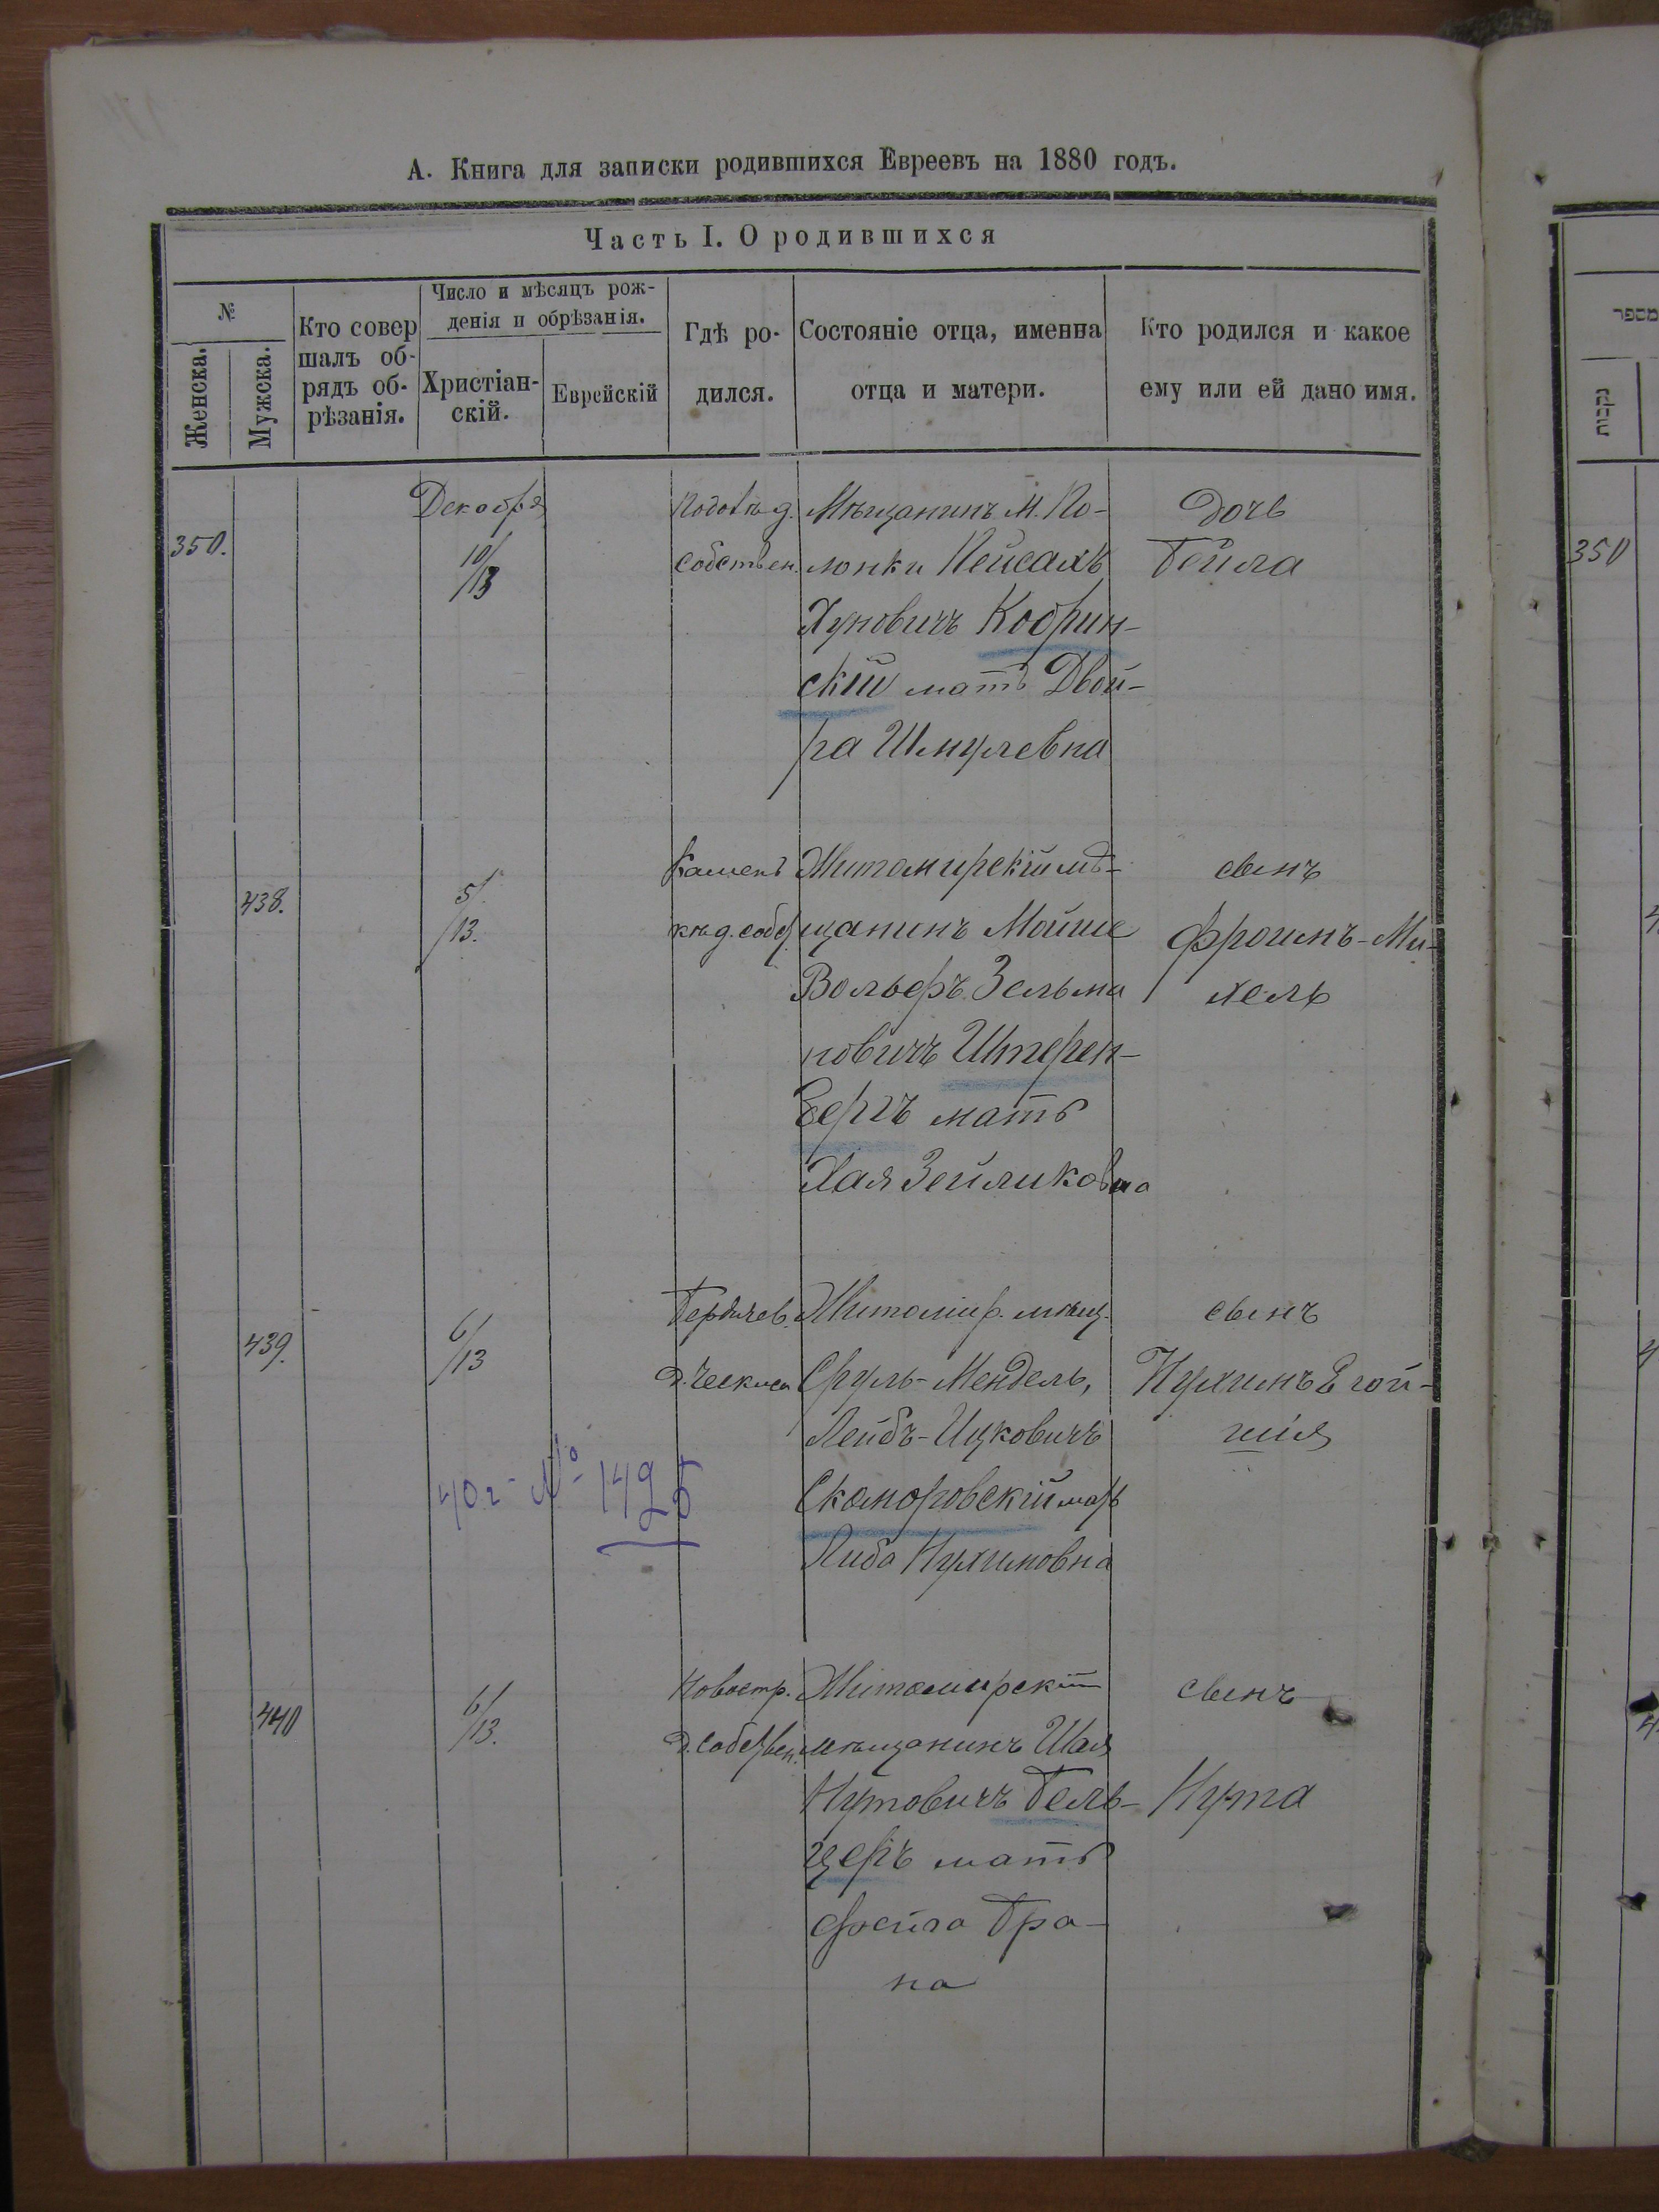 А. Книга для записки родившихся Евреевъ на 1880 годъ.
Часть I. О родившихся
№
Женска.
Мужска.
Кто совер
шалъ об-
рядъ об-
рѣзанія.
Число и мѣсяцъ рож-
денія и обрѣзанія.
Христіан-
скій.
Еврейскій
Гдѣ ро-
дился.
Состояніе отца, именна
отца и матери.
Кто родился и какое
ему или ей дано имя.
350.
Декабря
10/13
собствен.
Мѣщанинъ М. По-
лонки Пейсахъ
Хуновичъ Кобрин-
скій мать Двой-
ра Шмулевна
дочь
Бейла
438.
5/13.
Камен
к. д. соб.
Житомирскій мѣ-
щанинъ Мойше
Вольфъ Зельма
новичъ Штерен-
бергъ мать
Хая Зейликовна
сынъ
Фроимъ-Ми-
хель
439.
6/13
Бердичев.
Житомир. мѣщ.
Сруль-Мендель,
Лейбъ-Ицковичъ
Скоморовскій мать
Либа Нухимовна
сынъ
Нухимъ Егой-
шія
40 г. № 1425
440
6/13.
Новостр.
д. собствен.
Житомирскій
мѣщанинъ Шая
Нутовичъ Бель-
церъ мать
Фейга Бра-
на
сынъ
Нута
מספר
נקבות
350